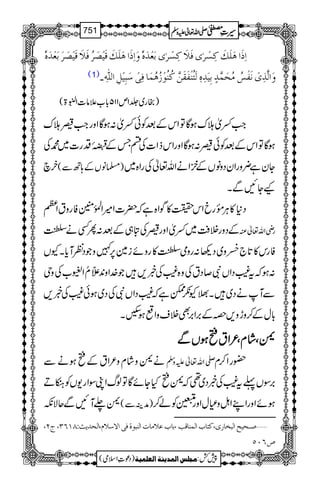 سیرتِ مصطفیٰ صلی اللہ تعالیٰ علیہ وسلم 751
اِذَا ھَلَکَ کِسْرٰی فَلَا کِسْرٰی بَعْدَہٗ وَاِذَا ھَلَکَ قَیْصَرُ فَلَا قَیْصَرَ بَعْدَہٗ
وَالَّذِیْ نَفْسُ مُحَمَّدٍ بِیَدِہٖ لَتُنْفَقَنَّ کُنُوْزُھُمَا فِیْ سَبِیْلِ اللّٰہِ۔ (1)
(بخاری جلد۱ ص۵۱۱ باب علامات النبوۃ)
جب کسریٰ ہلاک ہوگا تو اس کے بعد کوئی کسریٰ نہ ہوگا اور جب قیصر ہلاک
ہوگا تو اس کے بعد کوئی قیصر نہ ہوگا اور اس ذات کی قسم جس کے قبضۂ قدرت میں محمد کی
جان ہے ضرور ان دونوں کے خزانے اللہ تعالیٰ کی راہ میں (مسلمانوں کے ہاتھ سے) خرچ
کیے جائیں گے۔
دنیا کا ہر مؤرخ اس حقیقت کا گواہ ہے کہ حضرت امیر المؤمنین فاروق اعظم
رضی اللہ تعالیٰ عنہ کے دور خلافت میں کسریٰ اور قیصر کی تباہی کے بعد نہ پھر کسی نے سلطنت
فارس کا تاج خسروی دیکھا نہ رومی سلطنت کا روئے زمین پر کہیں وجود نظر آیا۔ کیوں
نہ ہو کہ یہ غیب داں نبی صادق کی وہ غیب کی خبریں ہیں جو خداوند علام الغیوب کی وحی
سے آپ نے دی ہیں۔ بھلا کیونکر ممکن ہے کہ غیب داں نبی کی دی ہوئی غیب کی خبریں
بال کے کروڑویں حصہ کے برابر بھی خلاف واقع ہوسکیں۔
یمن، شام، عراق فتح ہوں گے
حضور اکرم صلی اللہ تعالیٰ علیہ وسلم نے یمن و شام و عراق کے فتح ہونے سے
برسوں پہلے یہ غیب کی خبر دی تھی کہ یمن فتح کیا جائے گا تو لوگ اپنی سواریوں کو ہانکتے ہوئے
اور اپنے اہل و عیال اور متبعین کو لے کر (مدینہ سے) یمن چلے آئیں گے حالانکہ
1 ……صحیح البخاری،کتاب المناقب ،باب علامات النبوۃ فی الاسلام،الحدیث:۳۶۱۸،ج۲،
ص۵۰۶
پیش کش: مجلس المدینۃ العلمیۃ (دعوتِ اسلامی)